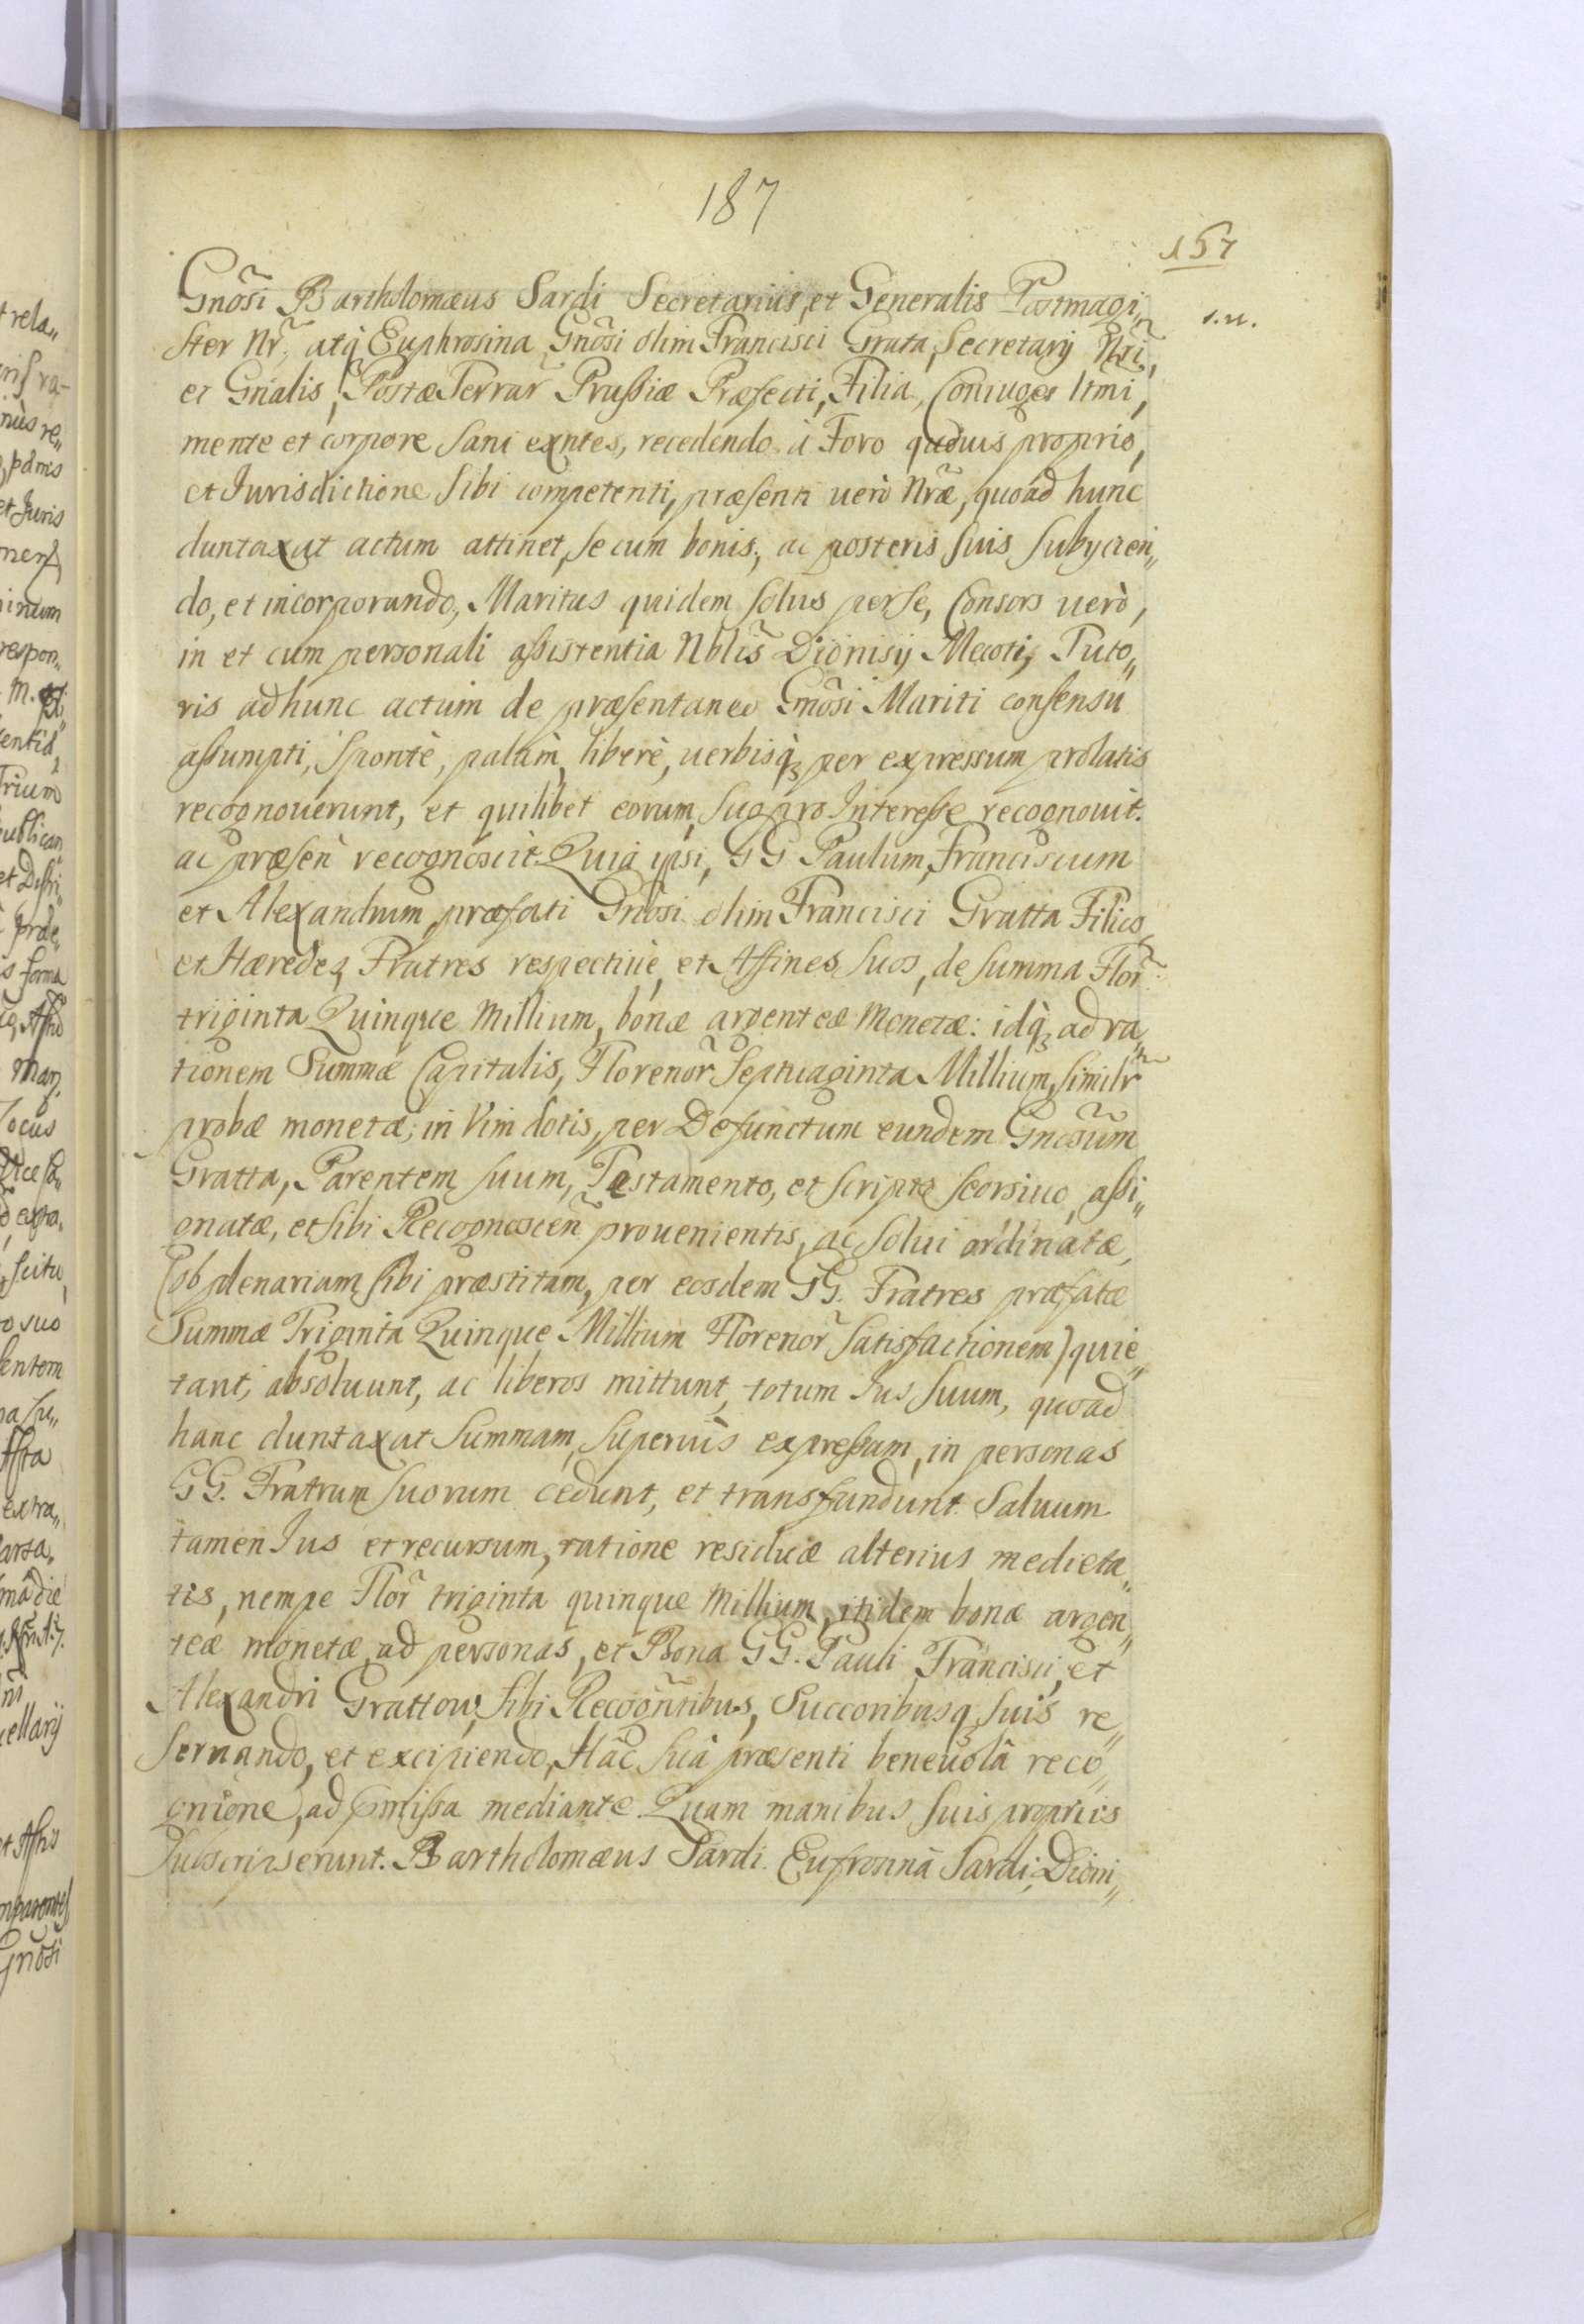 187
157
Gnōsi Bartholomæus Sardi Secretarius, et Generalis Postmagi„
s. n.
ster Nr̃, atq̃ Euphrosina Gnōsi olim Francisci Grata, Secretarij Nr̃i,
et Gn̄alis, Postæ Terrar̃ Prussiæ Præfecti, Filia, Coniuges ltmi,
mente et corpore sani exn̄tes, recedendo à Foro quouis proprio,
et Iurisdictione sibi competenti, præsenti uerò Nr̃æ, quoad hunc
duntaxat actum attinet, se cum bonis, ac posteris suis subycien„
do, et incorporando, Maritus quidem solus per se, Consors uerò,
in et cum personali assistentia Nblis̃ Dionisij Mecoti, Tuto„
ris ad hunc actum de præsentaneo Gnōsi Mariti consensu
assumpti, spontè, palàm, liberè, uerbisq̃ per expressum prolatis
recognouerunt, et quilibet eorum, suo pro Interesse recognouit.
ac præsen̄ recognoscit. Quia ipsi, GG Paulum, Franciscum
et Alexandrum, præfati Gnōsi olim Francisci Gratta Filios,
et Hæredes, Fratres respectiuè, et Affines suos, de summa Flor̃
triginta Quinque Millium, bonæ argenteæ Monetæ: idq̃ ad ra„
tionem Summæ Capitalis, Florenor̃ Septuaginta Millium, similr̃
probæ monetæ, in Vim dotis, per Defunctum eundem Gnōsum
Gratta, Parentem suum, Testamento, et scripto seorsiuo, assi„
gnatæ, et sibi Recognoscen̄ prouenientis, ac solui ordinatæ,
(ob plenariam sibi præstitam, per eosdem GG. Fratres præfatæ
Summæ Triginta Quinque Millium Florenor̃ satisfactionem) quie„
tant, absoluunt, ac liberos mittunt, totum Ius suum, quoad
hanc duntaxat Summam, superiùs expressam, in personas
GG. Fratrum suorum cedunt, et transfundunt. Saluum
tamen Ius et recursum, ratione residuæ alterius medieta„
tis, nempe Flor̃ triginta quinque Millium, itidem bonæ argen„
teæ monetæ, ad personas, et Bona GG. Pauli, Francisci, et
Alexandri Grattow, sibi Recogn̄tibus, Succoribusq̃ suis re„
seruando, et excipiendo, Hâc suâ præsenti beneuolâ reco„
gnīone, ad præmissa mediante. Quam manibus suis proprijs
subscripserunt. Bartholomæus Sardi. Eufrosina Sardi, Dioni„